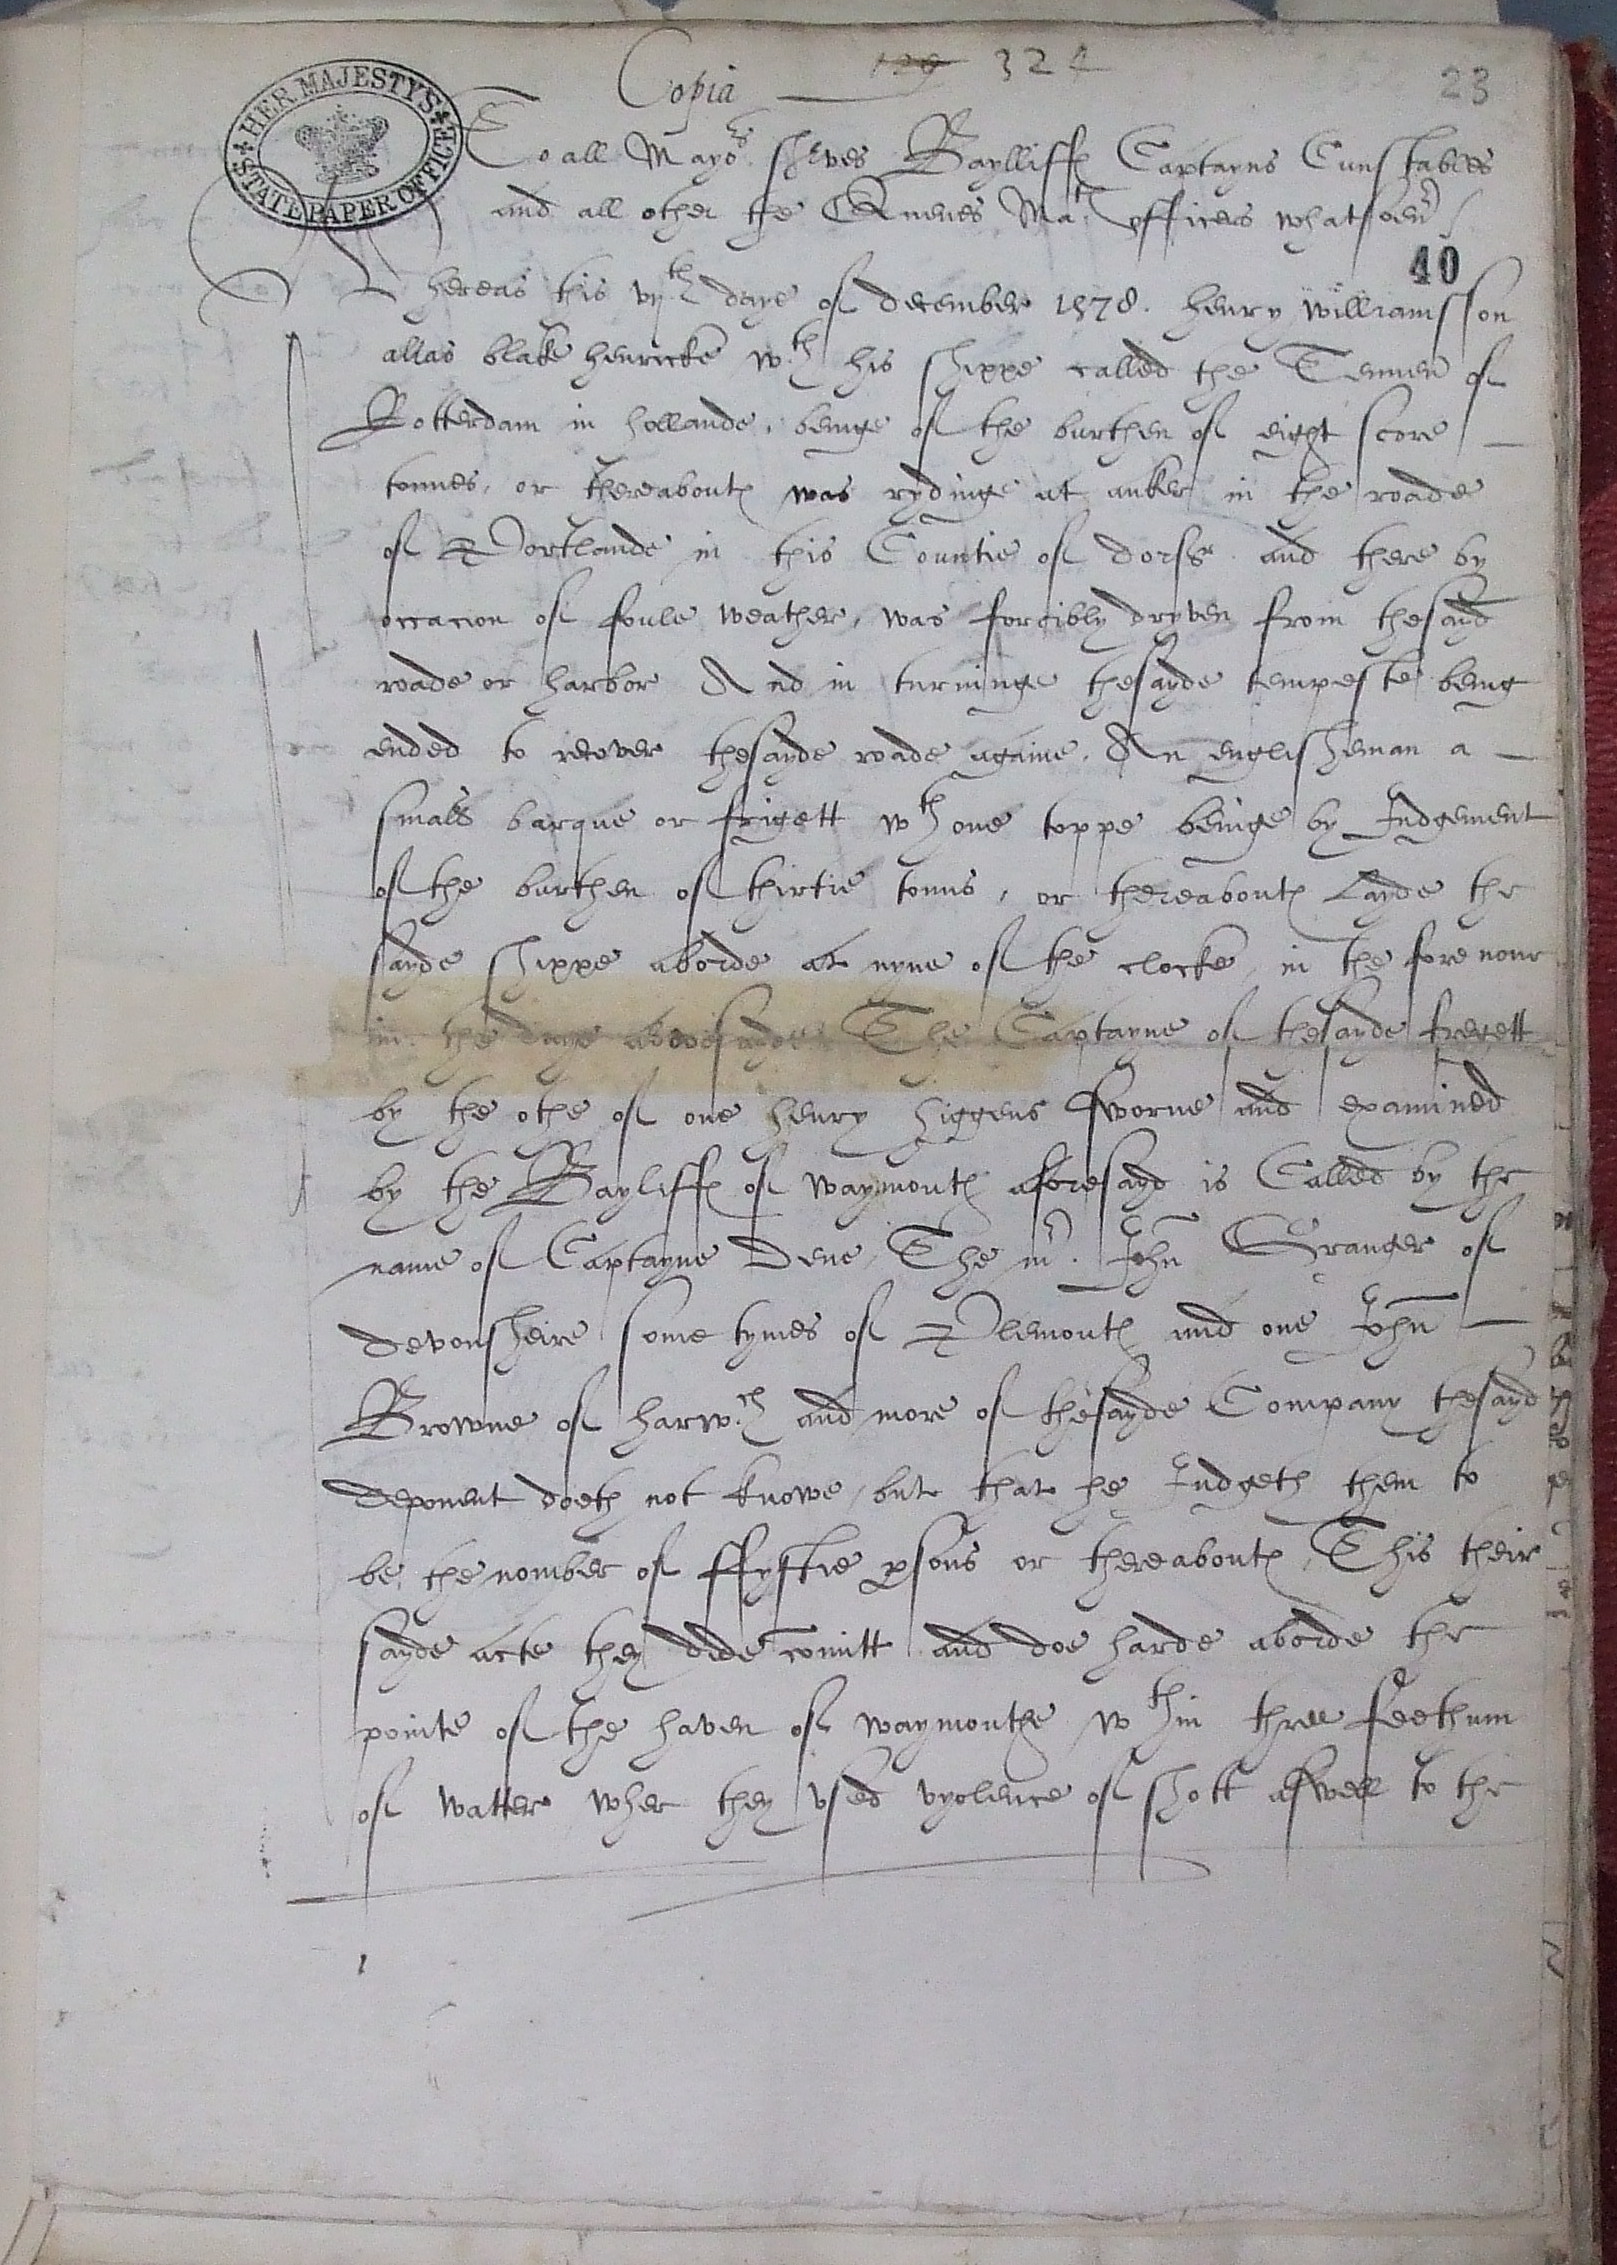 Copia 129 324
23
HER MAJESTYS STATE PAPER OFFICE
To all Mayors shrves Baylliffs Captayns Cunstables
and all other the Quenes Mats officers whatsoever
40
Whereas this vijth daye of december 1578. henry williamsson
allas blake henricke wth his shippe called the of
Rotterdam in hollande, beinge of the burthen of eight score
tonnes, or thereabouts was rydinge at anker in the roade
of Portlande in this Countie of dorst and there by
occacion of foule weather, was forcibly dryven from thesayd
roade or harbor And in turninge thesayde tempeste being
ended to recover thesayde roade againe. An englisheman a
small barque or frigett wth one toppe beinge by Judgement
of the burthen of thirtie tonns, or thereabouts Layde the
sayde shippe aborde at nyne of the clocke, in the fore none
in the daye abovesayde The Captayne of thesayde fregett
by the othe of one henry higgens sworne and examined
by the Bayliffs of waymouth aforesayd is Called by the
name of Captayne Dene, The mr. John Granger of
devonsheire some tymes of Plemouth and one John
Browne of harwch and more of thesayde Company thesayd
deponent doeth not knowe, but that he Judgeth them to
be the nomber of ffyftie psons or thereabouts, This their
sayde acte they dide comitt and doe harde aborde the
pointe of the haven of waymouthe wthin three feethum
of watter wher they vsed vyolence of shott aswell to the